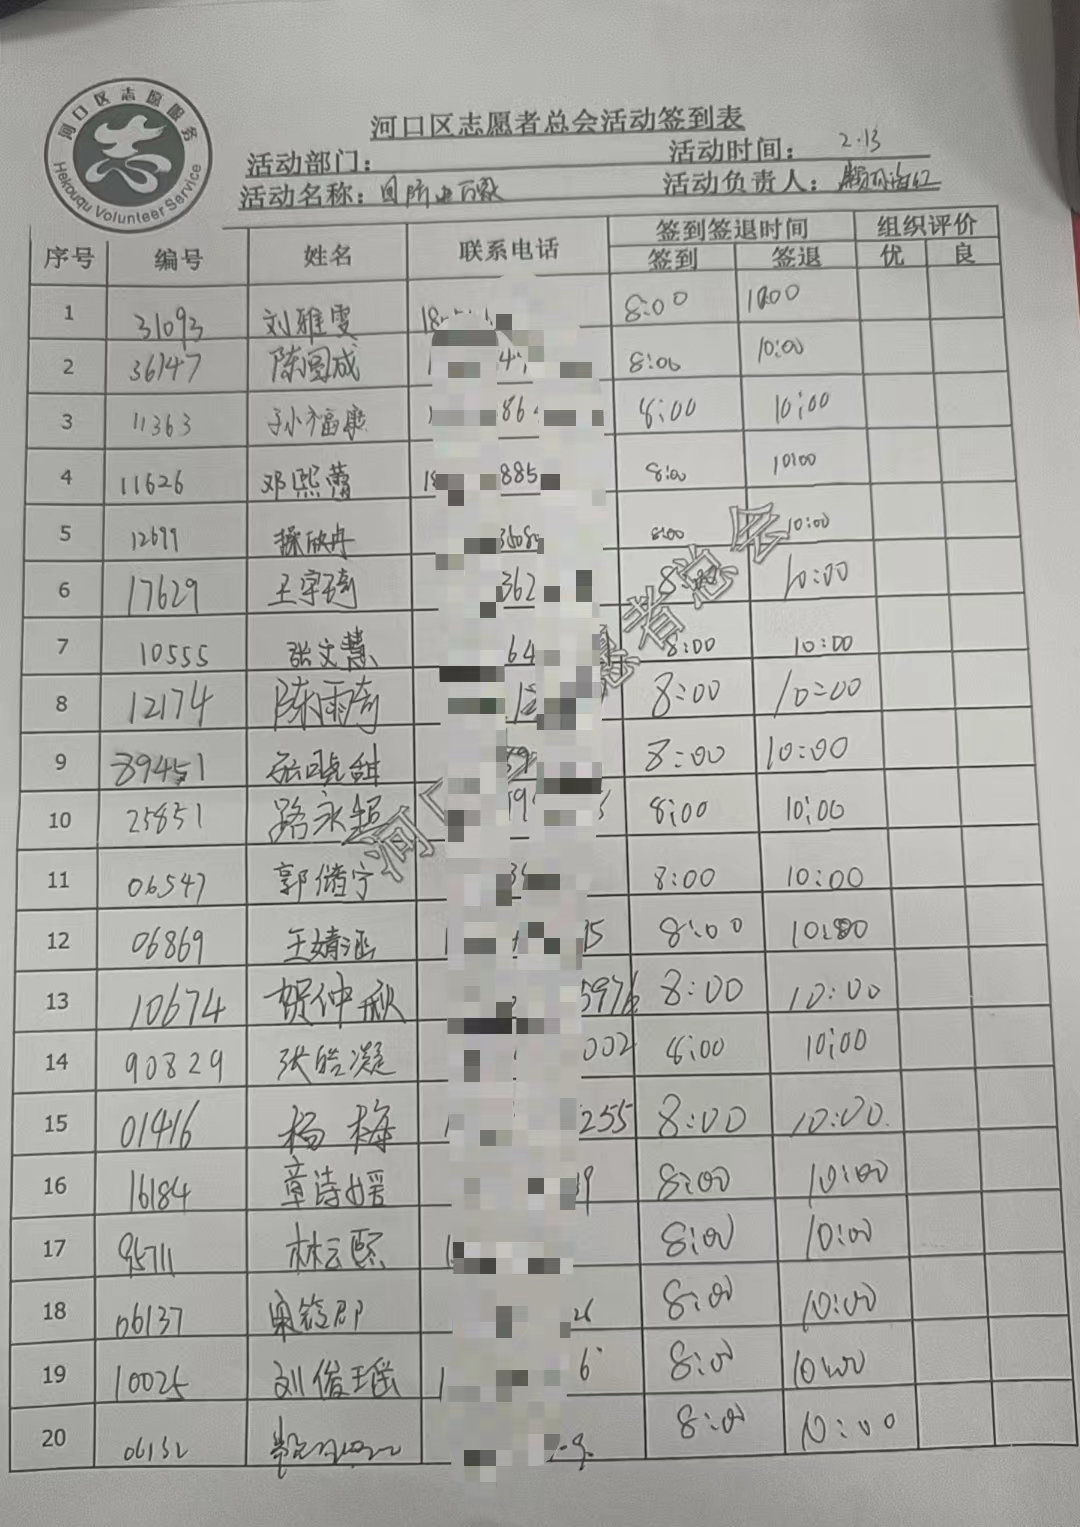 河口区志愿服务
Hekouqu Volunteer Service
志
河口区志愿者总会活动签到表
活动部门： 活动时间： 2.13
活动名称： 活动负责人：
序号 编号 姓名 联系电话 签到签退时间 组织评价
签到 签退 优 良
1 31093 刘雅雯 18 8:00 10:00
2 36147 陈国成 8:00 10:00
3 11363 孙福康 86 8:00 10:00
4 11626 邓熙蕾 18 885 8:00 10:00
5 12699 欣冉 8:00 10:00
6 17629 王宇琦 362 8:00 10:00
7 10555 张文慧 64 8:00 10:00
8 12174 陈雨奇 12 8:00 10:00
9 89451 8:00 10:00
10 25851 路永超 8:00 10:00
11 06547 郭储宁 8:00 10:00
12 06869 王婧涵 8:00 10:00
13 10674 贺仲秋 5976 8:00 10:00
14 90829 张皓凝 002 8:00 10:00
15 01416 杨梅 255 8:00 10:00
16 16184 章诗媛 8:00 10:00
17 95711 林云熙 8:00 10:00
18 06137 26 8:00 10:00
19 10025 刘俊瑶 6 8:00 10:00
20 06132 8:00 10:00
河 愿者总会